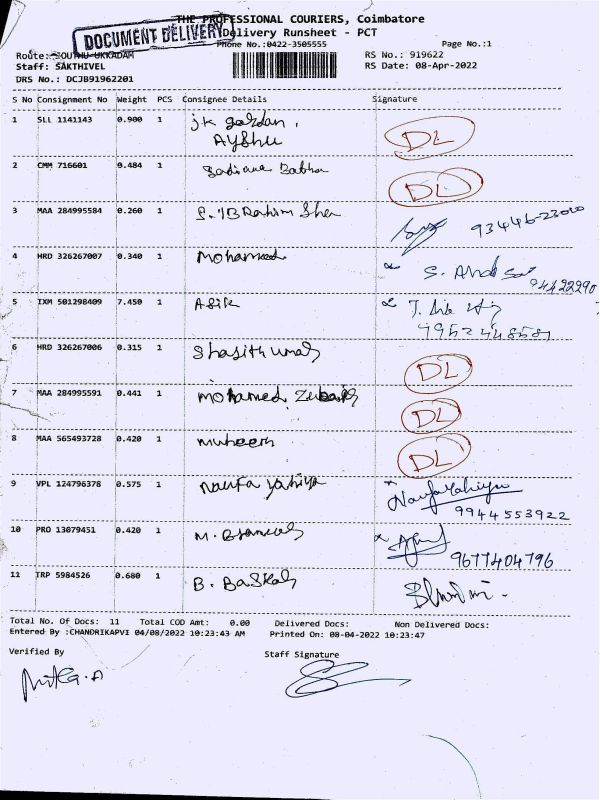 THE PROFESSIONAL COURIERS, Coimbatore
DOCUMENT DELIVERY
Delivery Runsheet - PCT
Phone No.:0422-3505555
Page No.:1
Route: SOUTHU UKKADAM
RS No.: 919622
Staff: SAKTHIVEL
RS Date: 08-Apr-2022
DRS No.: DCJB91962201
S No Consignment No Weight PCS Consignee Details Signature
1 SLL 1141143 0.900 1 jk gardan, DL
Ayshu
2 CMM 716601 0.484 1 DL
3 MAA 284995584 0.260 1 93446-23000
4 HRD 326267007 0.340 1 Mohamed S.
9442290
5 IXM 501298409 7.450 1 Asik
6 HRD 326267006 0.315 1 DL
7 MAA 284995591 0.441 1 Mohamed DL
8 MAA 565493728 0.420 1 DL
9 VPL 124796378 0.575 1 Naufa Yahiya Naufa Yahiya
9944553922
10 PRO 13079451 0.420 1 M.
9677404796
11 TRP 5984526 0.680 1 B. Baskar
Total No. Of Docs: 11 Total COD Amt: 0.00 Delivered Docs: Non Delivered Docs:
Entered By :CHANDRIKAPVI 04/08/2022 10:23:43 AM Printed On: 08-04-2022 10:23:47
Verified By Staff Signature